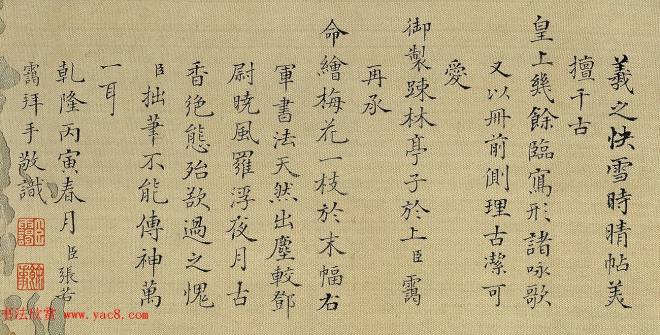 羲之快雪時晴帖美
擅千古
皇上幾餘臨寫形諸咏歌
又以冊前側理古潔可
愛
御製踈林亭子於上臣靄
再承
命繪梅花一枝於末幅右
軍書法天然出塵較鄧
尉暁風羅浮夜月古
香絶態殆欲過之愧
臣拙筆不能傳神萬
一耳
乾隆丙寅春月臣張若
靄拜手敬識
书法欣赏 www.yac8.com